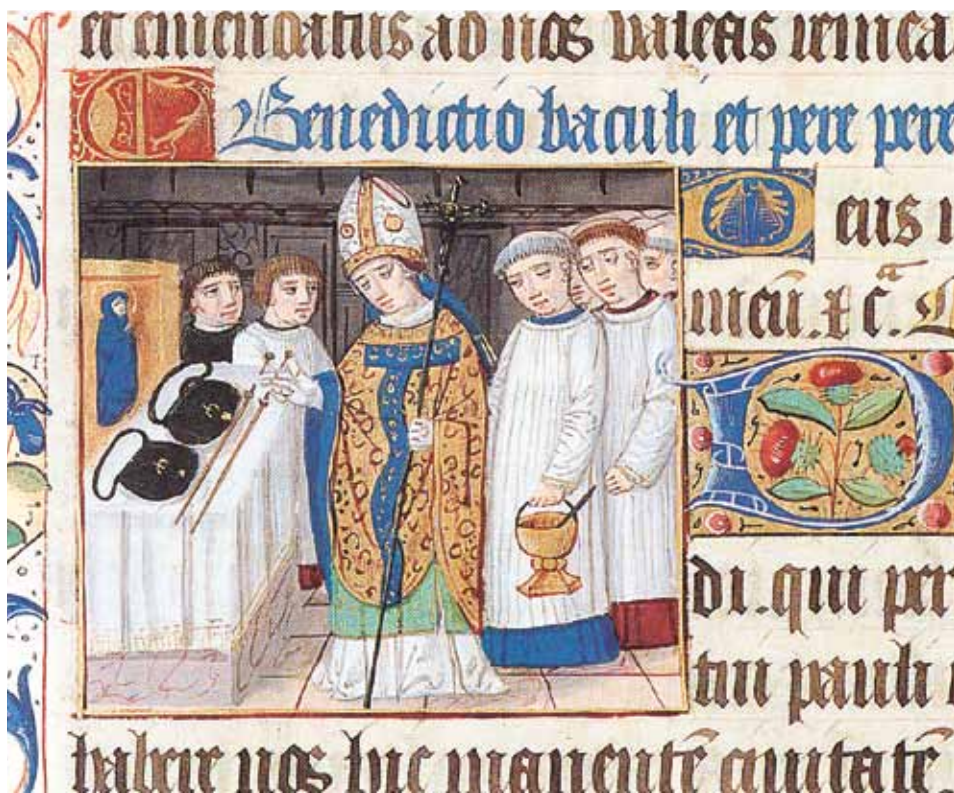 et emendatus ad nos valeas
Benedictio baculi et pere pere
Deus
D
di. qui per
tui pauli
habere nos hic manentē ciuitatē